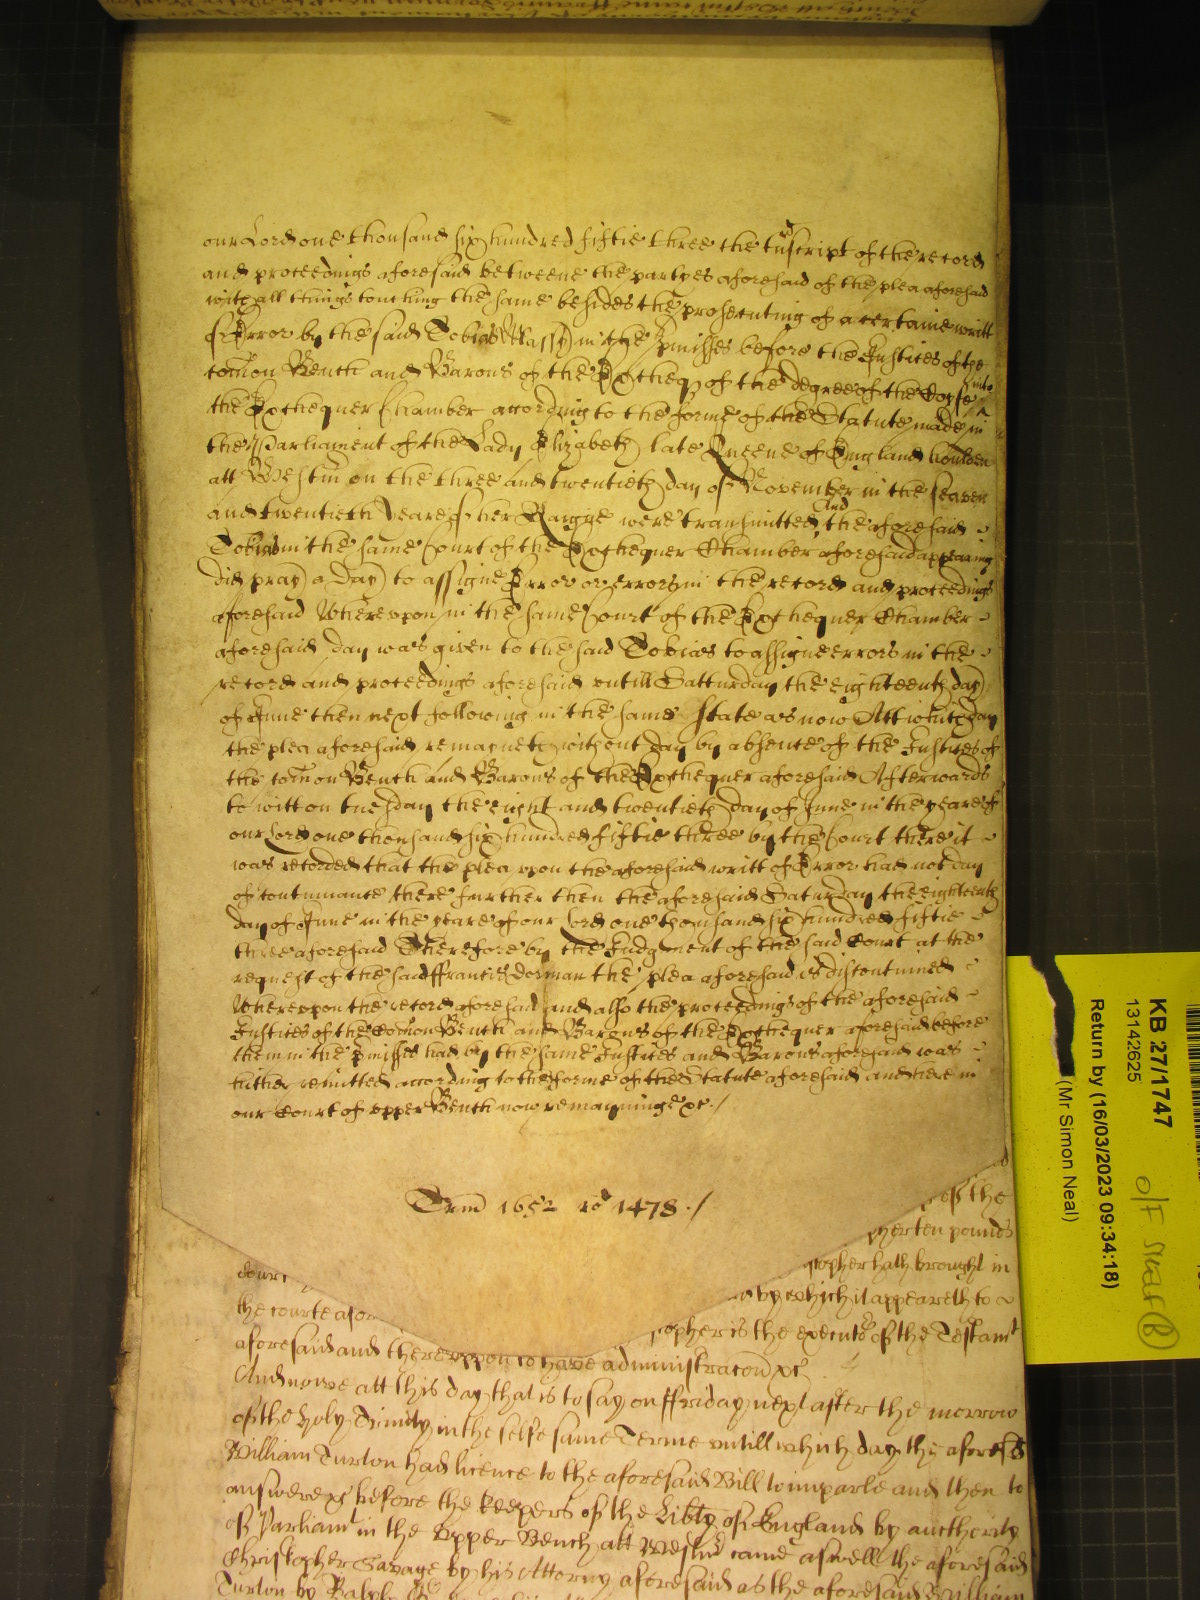 our Lord one thousand six hundred fiftie three the tnscript of the record
and proceedings aforesaid betweene the partyes aforesaid of the plea aforesaid
with all things touching the same besides the prosecuting of a certaine writt
of Error by the said Tobias Massy in the pmisses before the Justices of the
comon Bench and Barons of the Exchequer of the degree of the Coyfe into
the Exchequer Chamber according to the forme of the Statute made in
the Parliament of the Lady Elizabeth late Queene of England houlden
att Westm on the three and twentieth day of November in the seaven
and twentieth yeare of her Raigne were transmitted And the aforesaid
Tobias in the same Court of the Exchequer Chamber aforesaid appearing
did pray a day to assigne Error or errors in the record and proceedings
aforesaid Whereupon in the same Court of the Exchequer Chamber
aforesaid day was given to the said Tobias to assigne errors in the
record and proceedings aforesaid untill Satturday the eighteenth day
of June then next following in the same state as now Att which day
the plea aforesaid remayneth without day by absence of the Justices of
the comon Bench and Barons of the Exchequer aforesaid Afterwards
to witt on tuesday the eight and twentieth day of June in the yeare of
our Lord one thousand six hundred fiftie three by the Court there it
was recorded that the plea upon the aforesaid writt of Error had not day
of continuance there further then the aforesaid Saturday the eighteenth
day of June in the yeare of our Lord one thousand six hundred fiftie
three aforesaid Therefore by the Judgment of the said Court at the
request of the said ffrancis Dorman the plea aforesaid is discontinued
Whereupon the record aforesaid and also the proceedings of the aforesaid
Justices of the Comon Bench and Barons of the Exchequer aforesaid before
them in the pmisses had by the same Justices and Barons aforesaid was
hither remitted according to the forme of the Statute aforesaid and here in
our Court of upper Bench now remayninge &c. /
Trin 1652 ro 1478. /
of the
ten pounds
Court
opher hath brought in
the courte afor
by which it appeareth to
opher is the executor of the Testamt
aforesaid and thereuppon to have administracon &c
And nowe att this day that is to say on ffriday next after the morrow
of the Holy Trinity in the selfe same Terme untill which day the aforesd
William Turton had licence to the aforesaid Bill to imparle and then to
answere &c before the keepers of the Libty of England by aucthority
of Parliamt in the upper Bench att Westm came aswell the aforesaid
Christopher Savage by his Attorny aforesaid as the aforesaid William
Turton by Ralph
KB 27/1747
13142625
Return by (16/03/2023 09:34:18)
(Mr Simon Neal)